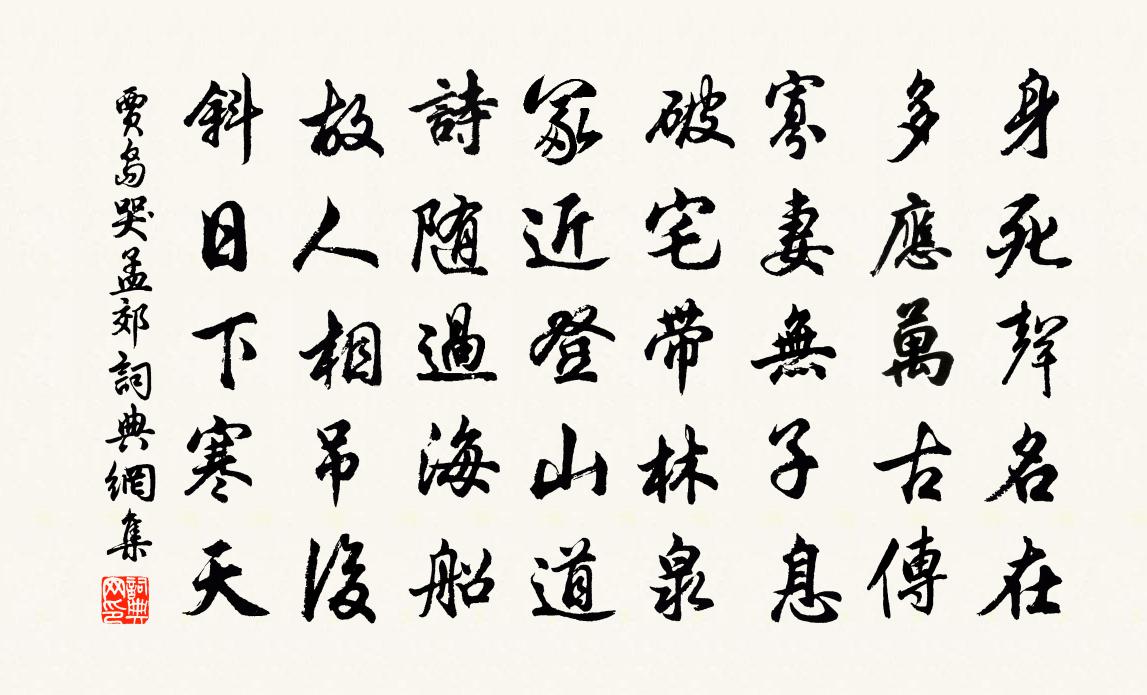 身死聲名在
多應萬古傳
寡妻無子息
破宅帶林泉
冢近登山道
詩随過海船
故人相吊後
斜日下寒天
賈島哭孟郊詞典網集
詞典
网印